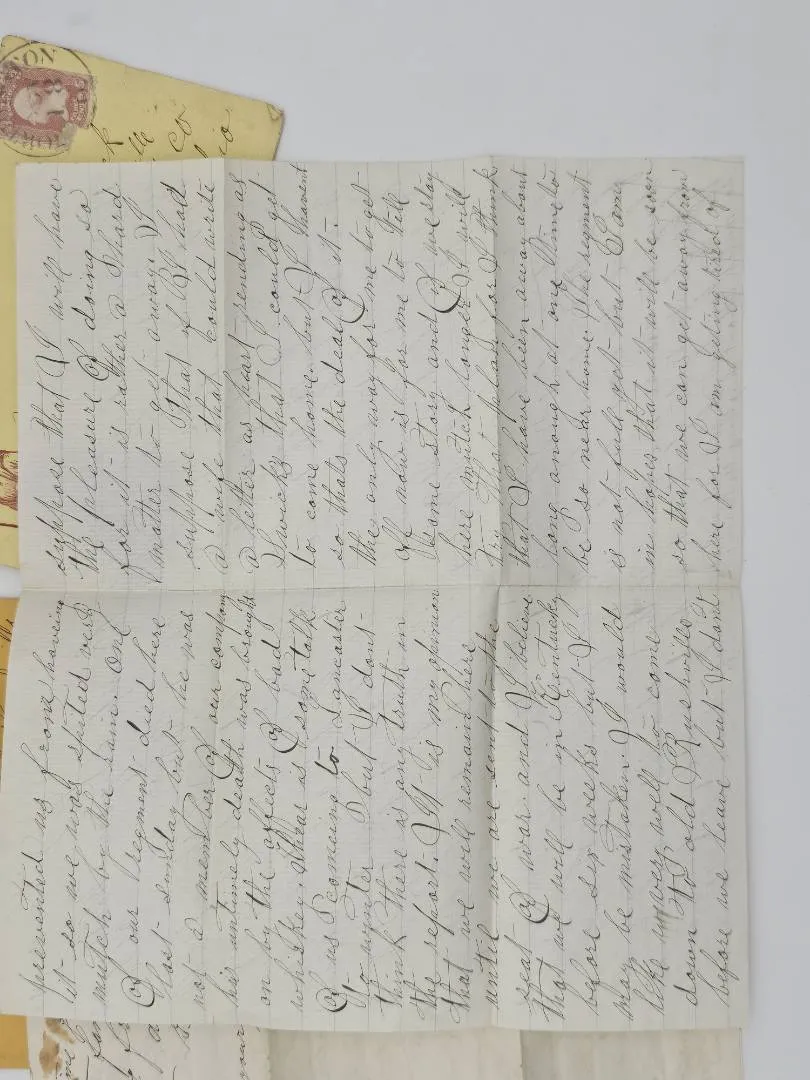 prevented us from having
it so we was suited very
mutch by the rain. One
of our regment died here
last sunday but he was
not a member of our company
his untimely death was brought
on by the affects of bad
whiskey. thear is some talk
of us comeing to Lancaster
to wynter but I dont
think there is any truth in
the report. It is my opinion
that we will remain here
until we are sent to the
seat of war and I believe
that we will be in Kentucky
before six weeks but I
may be mistaken I would
like very well to come
down to old Rushville
before we leave but I dont
suppose that I will have
the pleasure of doing so
for it is rather a hard
matter to get away. I
suppose that if I had
a wife that could write
a letter as heart rending as
that I could get
to come home but I havent
so thats the deal of it.
the only way for me to get
of now is for me to tell
some story and if we stay
here mutch longer I will
try that plan for I think
that I have been away about
long anough at one time to
be so near home. The regment
is not full yet but I am
in hopes that it will be soon
so that we can get away from
here for I am geting tired of
co